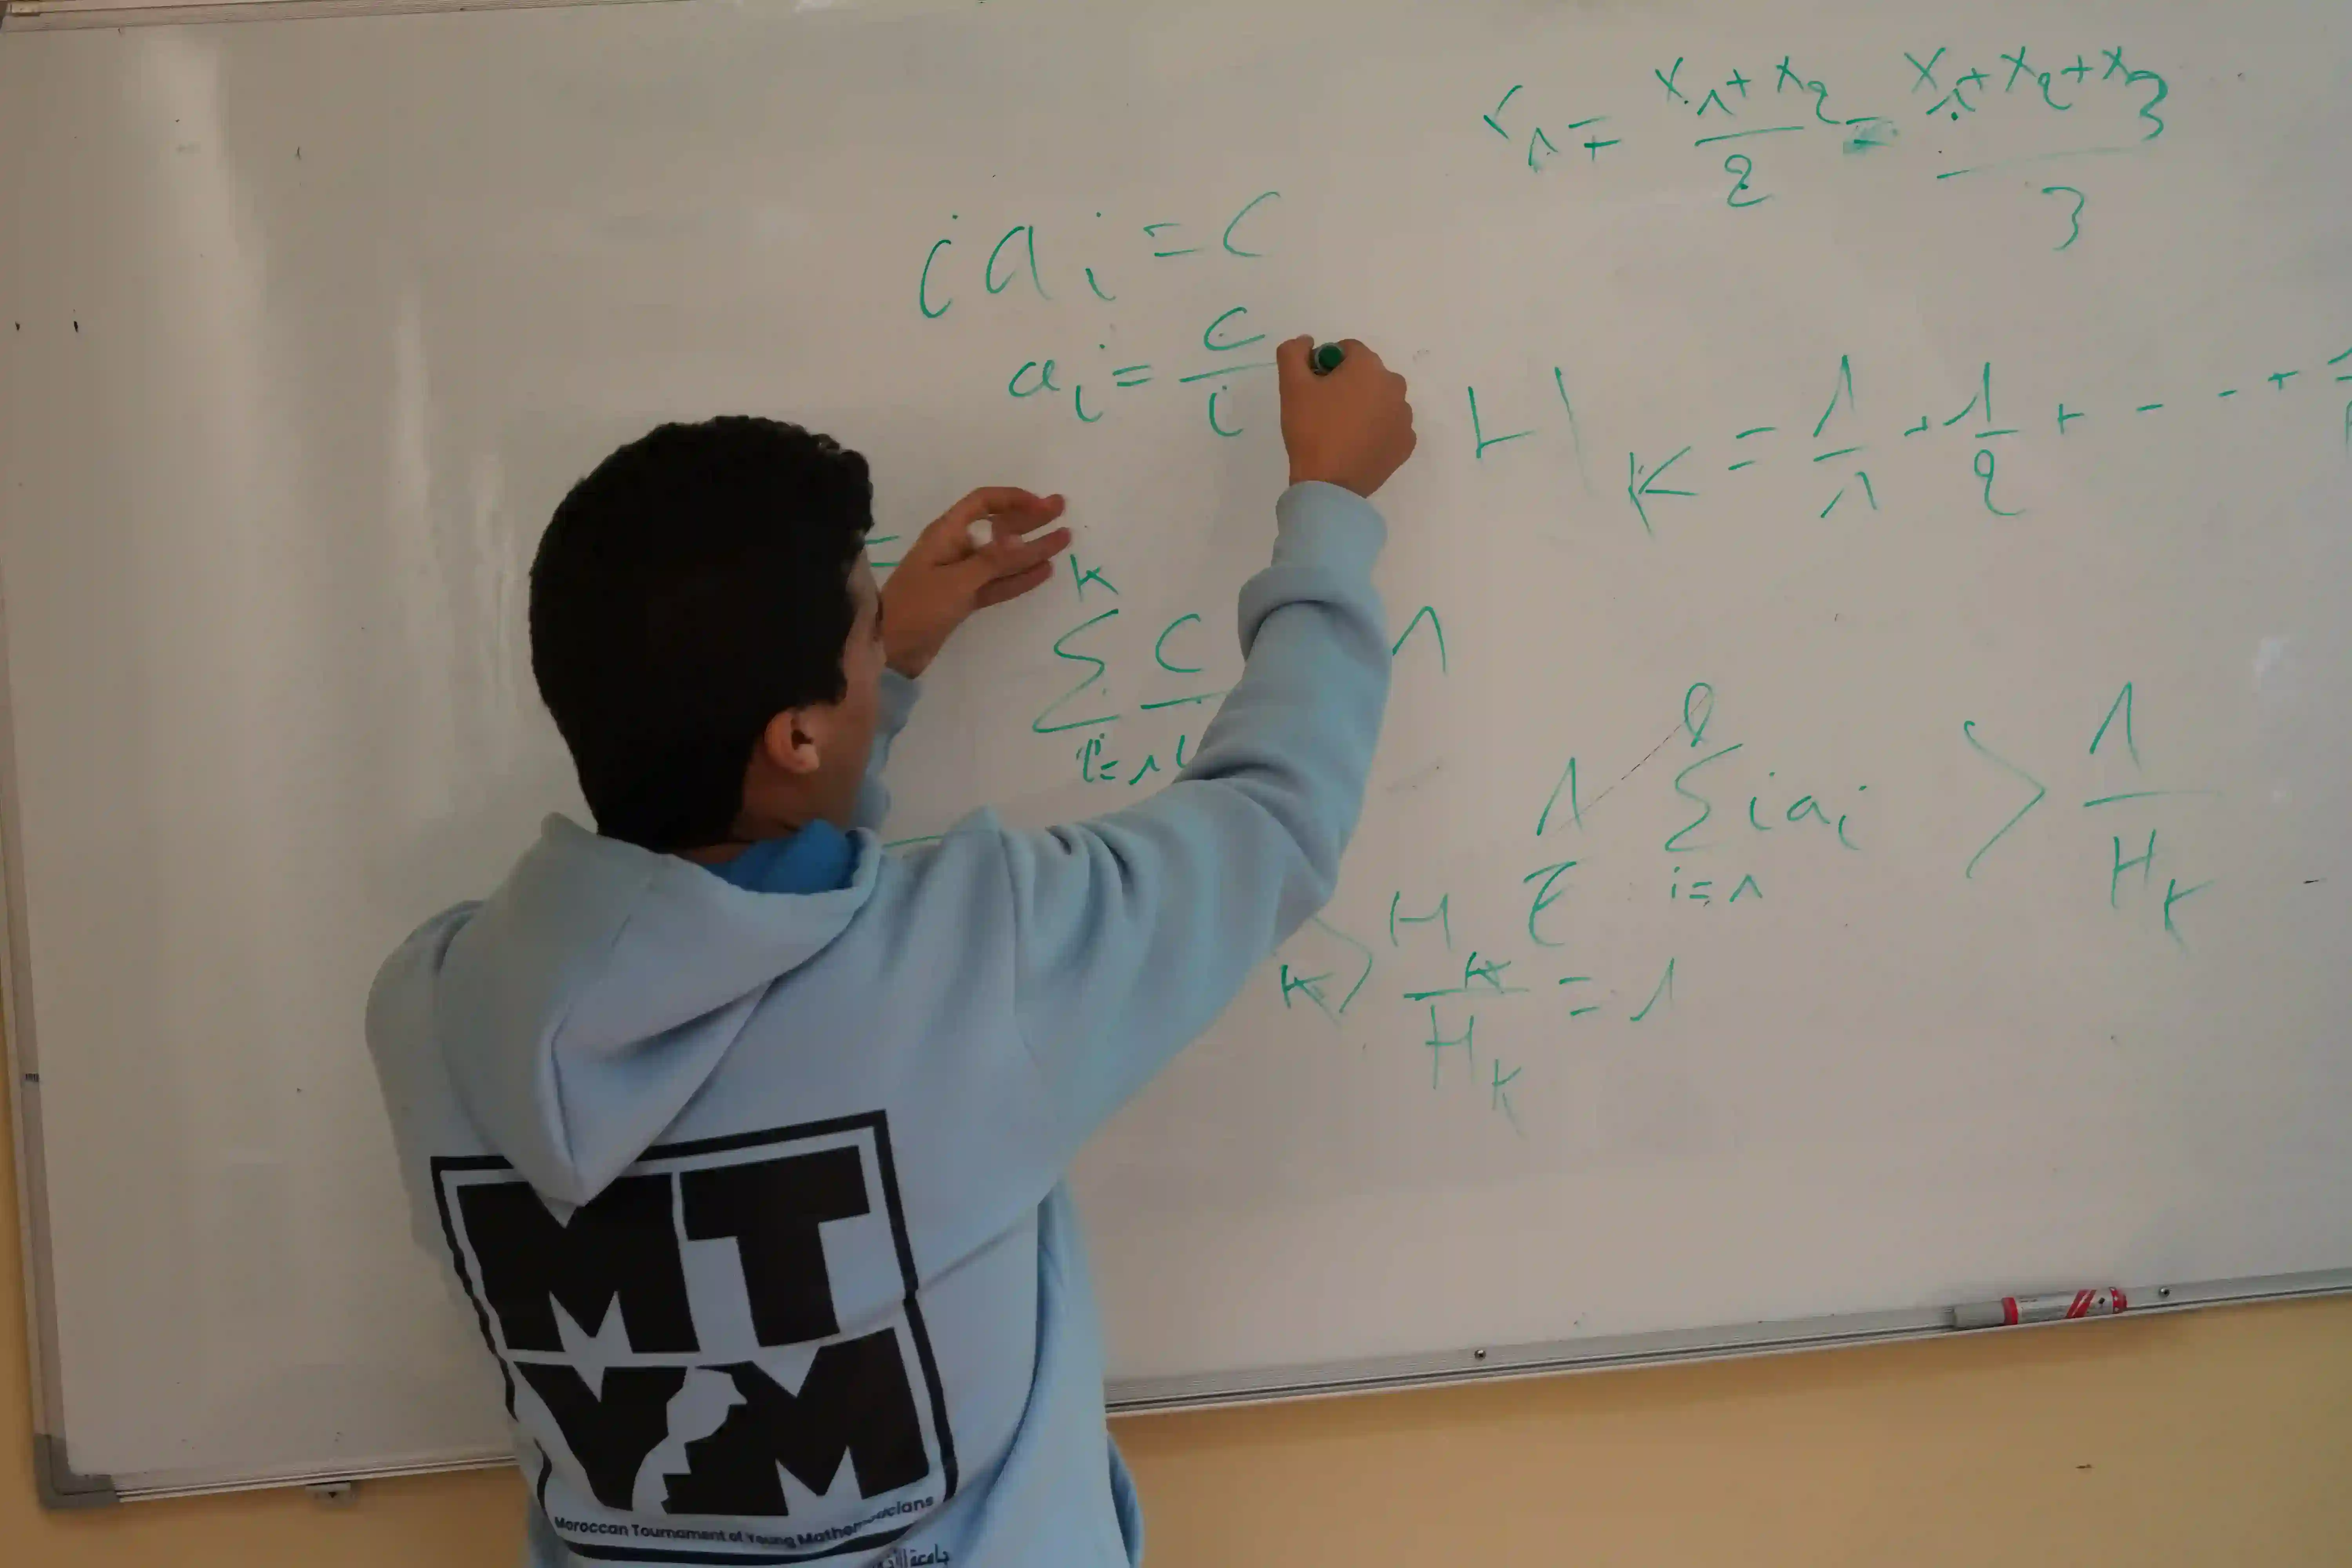 x₁ + x₂ / 2 = x₁ + x₂ + x₃ / 3
i aᵢ = c
aᵢ = c / i
H_K = 1/1 + 1/2 + - - - +
K
∑ c
i=1
1
∑ i aᵢ > 1 / H_K
i=1
K > H_K / H_K = 1
MT
YM
Moroccan Tournament of Young Mathematicians